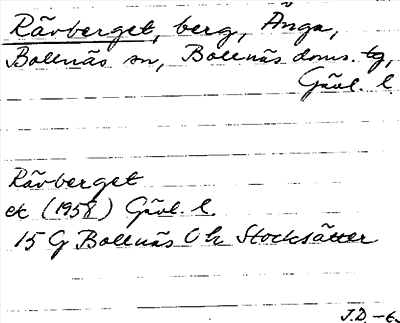 Rävberget, berg, Änga,
Bollnäs sn, Bollnäs doms. tg,
Gävl. l.
Rävberget
ek (1958) Gävl. l.
15 G Bollnäs 0 h Stocksätter
J.D. -6